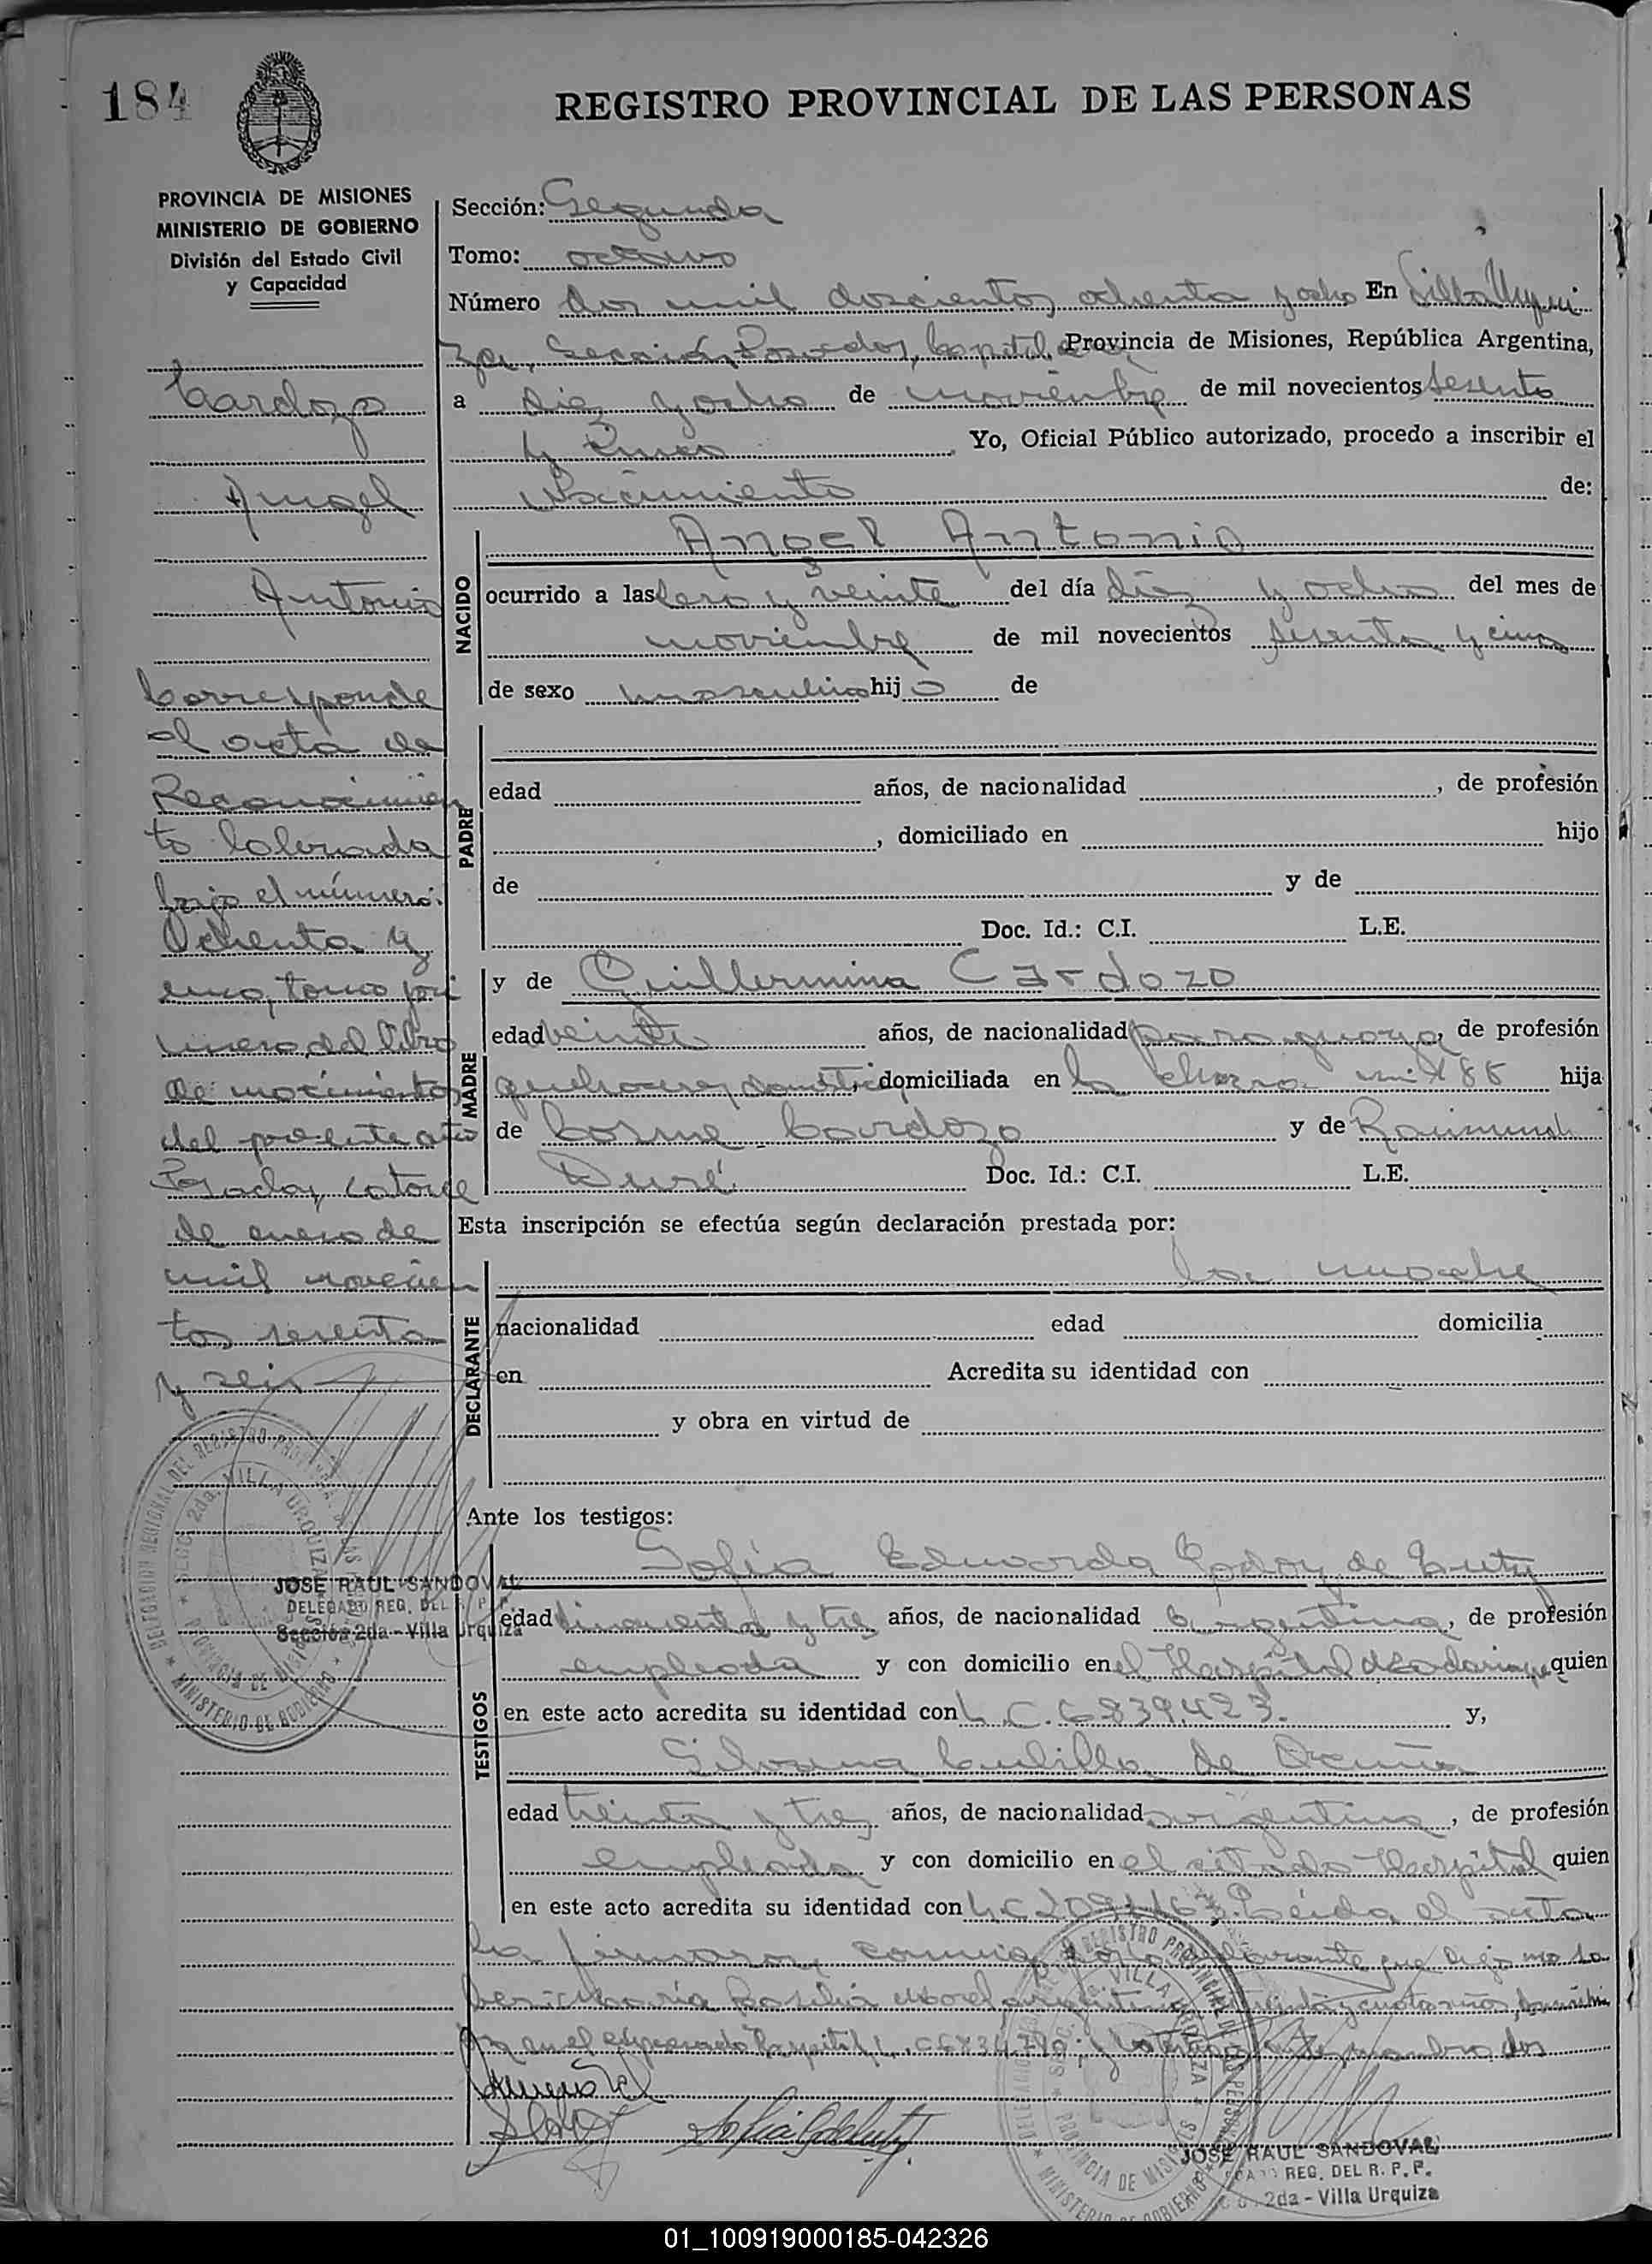 184
REGISTRO PROVINCIAL DE LAS PERSONAS
PROVINCIA DE MISIONES
MINISTERIO DE GOBIERNO
División del Estado Civil
y Capacidad
Cardozo
Angel
Antonio
Corresponde
al acta de
Reconocimien
to labrada
bajo el número:
Ochenta y
uno, tomo pri
mero, del libro
de nacimientos
del presente año
Posadas, catorce
de enero de
mil novecien
tos sesenta
y seis
JOSE RAUL SANDOVAL
DELEGADO REG. DEL R. P. P.
Sección 2da - Villa Urquiza
Sección: Segunda
Tomo: octavo
Número dos mil doscientos ochenta y ocho En Villa Urqui
za, Sección Posadas, Capital de Provincia de Misiones, República Argentina,
a diez y ocho de noviembre de mil novecientos sesenta
y cinco Yo, Oficial Público autorizado, procedo a inscribir el
Nacimiento de:
NACIDO
Angel Antonio
ocurrido a las cero y veinte del día diez y ocho del mes de
noviembre de mil novecientos sesenta y cinco
de sexo masculino hijo de
PADRE
edad años, de nacionalidad , de profesión
, domiciliado en hijo
de y de
Doc. Id.: C.I. L.E.
MADRE
y de Guillermina Cardozo
edad veinte años, de nacionalidad paraguaya, de profesión
quehaceres domést. domiciliada en la chacra 88 hija
de Cosme Cardozo y de Raimunda
Duré Doc. Id.: C.I. L.E.
Esta inscripción se efectúa según declaración prestada por:
DECLARANTE
la madre
nacionalidad edad domicilia
en Acredita su identidad con
y obra en virtud de
Ante los testigos:
TESTIGOS
Sofía Eduarda Godoy de
edad cincuenta y tres años, de nacionalidad argentina, de profesión
empleada y con domicilio en el Hospital quien
en este acto acredita su identidad con L.C. 6839.423. y,
Silvana de Acuña
edad treinta y tres años, de nacionalidad argentina, de profesión
empleada y con domicilio en el citado Hospital quien
en este acto acredita su identidad con L.C. Leida el acta
la firmaron conmigo que dijo no sa
ber María
en el expresado Hospital, L.C.
JOSE RAUL SANDOVAL
REG. DEL R. P. P.
2da - Villa Urquiza
01_100919000185-042326